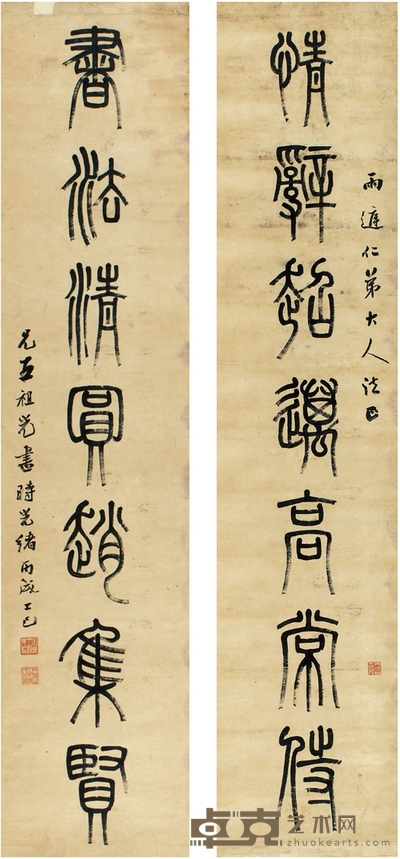 雨
仁弟大人法正
情辭超邁高常侍
書法清圓趙集賢
兄王祖光書時光緒丙戌上巳
卓克艺术网
zhuokearts.com